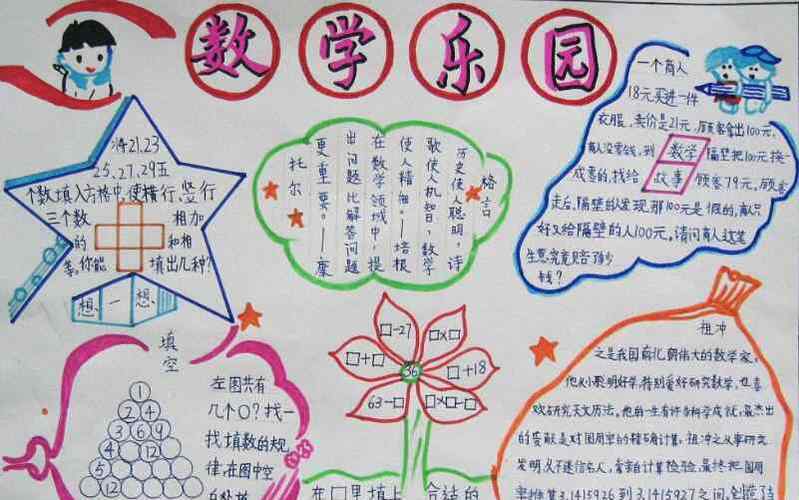 数学乐园
将21.23
25.27.29五
个数填入方格中,使横行、竖行
三个数 相加
的 和相
等。你能 填出几种?
想一想
格言
历史使人聪明,诗
歌使人机智,数学
使人精细。——培根
在数学领域中,提
出问题比解答问题
更重要。——康
托尔
一个商人
18元买进一件
衣服,卖价是21元,顾客拿出100元,
商人没零钱,到 隔壁把100元换
成零的,找给 顾客79元,顾客
数学
故事
走后,隔壁的人发现,那100元是假的,商人只
好又给隔壁的人100元。请问商人这笔
生意究竟赔多少
钱?
填空
1
2 4
3 6 9
4 12
5
12
左图共有
几个○?找一
找填数的规
律,在图中空
□-27
□×□
□+□
36
□+18
63-□
□×□-□
在□里填上 合适的
祖冲
之是我国南北朝伟大的数学家,
他从小聪明好学,特别爱好研究数学,也喜
欢研究天文历法。他的一生有许多科学成就,最杰出
的贡献是对圆周率的精确计算,祖冲之从事研究
发明,从不迷信名人,
计算检验,最终把圆周
率推算3.1415926到3.1415927之间,创造了